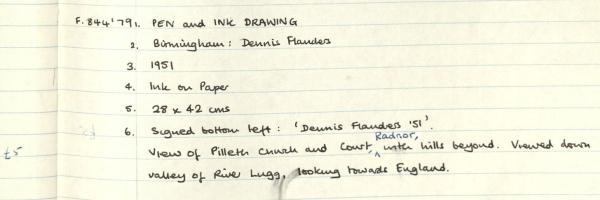 F.844'791. PEN and INK DRAWING
2. Birmingham: Dennis Flanders
3. 1951
4. Ink on Paper
5. 28 x 42 cms
6. Signed bottom left: 'Dennis Flanders '51'.
View of Pilleth Church and Court, Radnor, with hills beyond. Viewed down
£5 valley of River Lugg, looking towards England.